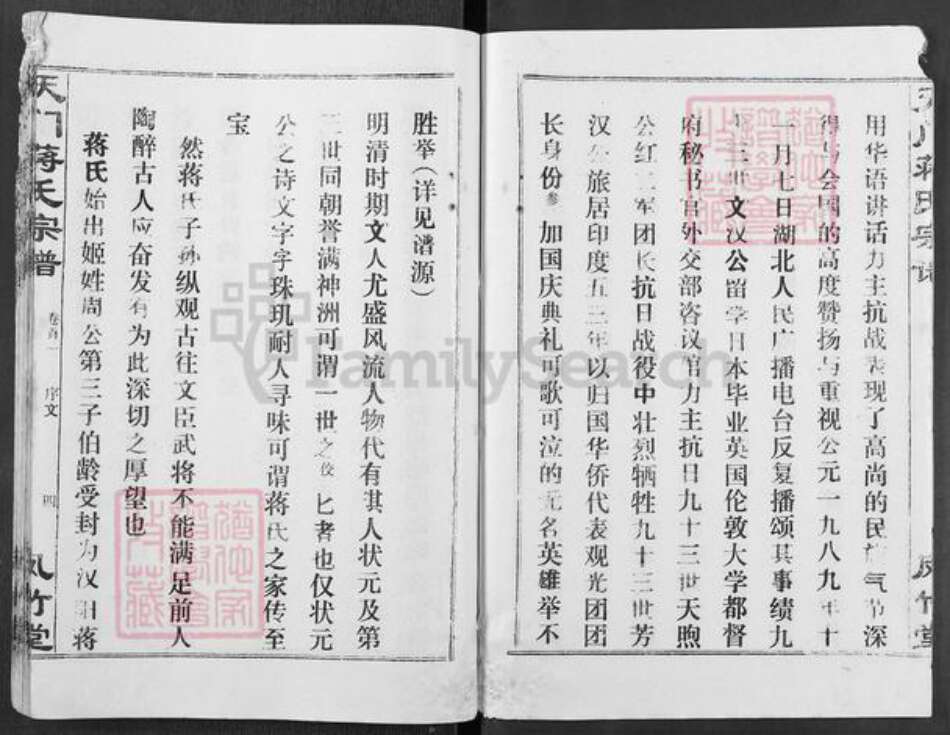 用华语讲话力主抗战表现了高尚的民族气节深
得与会国的高度赞扬与重视公元一九八九年十
一月七日湖北人民广播电台反复播颂其事绩九
十三世文汉公留学日本毕业英国伦敦大学都督
府秘书官外交部咨议官力主抗日九十三世天煦
公红二军团长抗日战役中壮烈牺牲九十三世芳
汉公旅居印度五三年以归国华侨代表观光团团
长身份参加国庆典礼可歌可泣的无名英雄举不
胜举(详见谱源)
明清时期文人尤盛风流人物代有其人状元及第
三世同朝誉满神洲可谓一世之佼匕者也仅状元
公之诗文字字珠玑耐人寻味可谓蒋氏之家传至
宝
然蒋氏子孙纵观古往文臣武将不能满足前人
陶醉古人应奋发有为此深切之厚望也
蒋氏始出姬姓周公第三子伯龄受封为汉阳蒋
天门蒋氏宗谱
卷首一
序文
四
凤竹堂
天门蒋氏宗谱
凤竹堂
FamilySearch